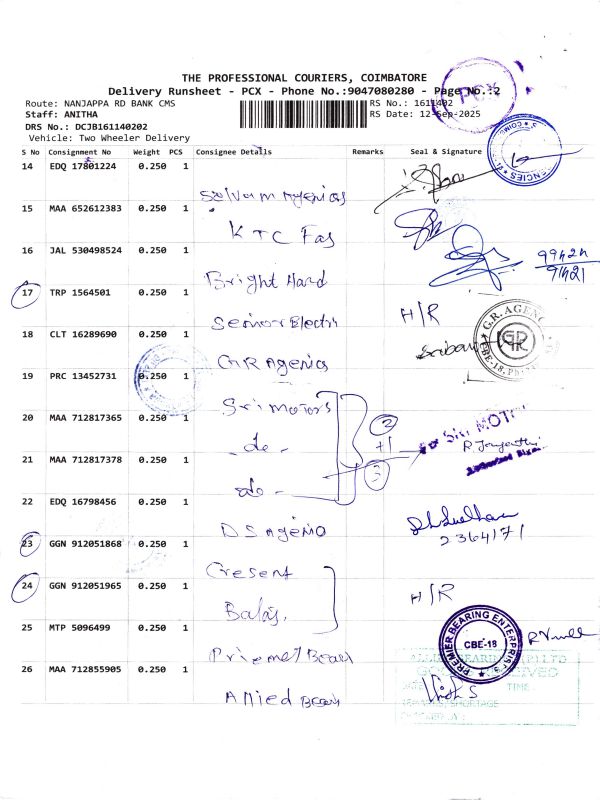 THE PROFESSIONAL COURIERS, COIMBATORE
Delivery Runsheet - PCX - Phone No.:9047080280 - Page No.:2
PCX
Route: NANJAPPA RD BANK CMS
RS No.: 1611402
Staff: ANITHA
RS Date: 12-Sep-2025
DRS No.: DCJB161140202
Vehicle: Two Wheeler Delivery
S No Consignment No Weight PCS Consignee Details Remarks Seal & Signature
14 EDQ 17801224 0.250 1
Selvam Agencies
15 MAA 652612383 0.250 1
KTC Fas
16 JAL 530498524 0.250 1
Bright Hard
17 TRP 1564501 0.250 1
Senior Electri H/R
18 CLT 16289690 0.250 1
G.R. AGENC
CBE-18
GR Agencies
19 PRC 13452731 0.250 1
Sri motors
20 MAA 712817365 0.250 1
- do - 2 +1 3
SRI MOT
21 MAA 712817378 0.250 1
do -
22 EDQ 16798456 0.250 1
DS Agenio
2364171
23 GGN 912051868 0.250 1
Cresent
24 GGN 912051965 0.250 1
Balaji. H/R
25 MTP 5096499 0.250 1
PREMIER BEARING ENTERPRISES
CBE-18
Premer Bears
26 MAA 712855905 0.250 1
TIME :
Allied Bears